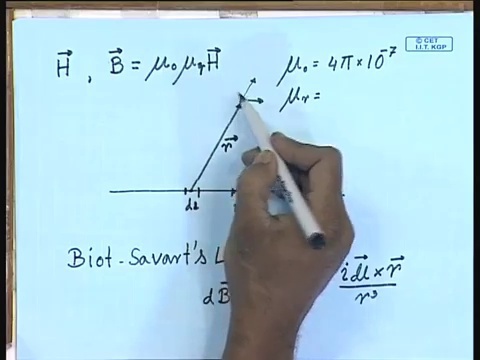 © CET
I.I.T. KGP
H⃗ , B⃗ = μ₀ μᵣ H⃗ μ₀ = 4π × 10⁻⁷
μᵣ =
r⃗
dl
Biot-Savart's L
dB⃗ i dl⃗ × r⃗
r³